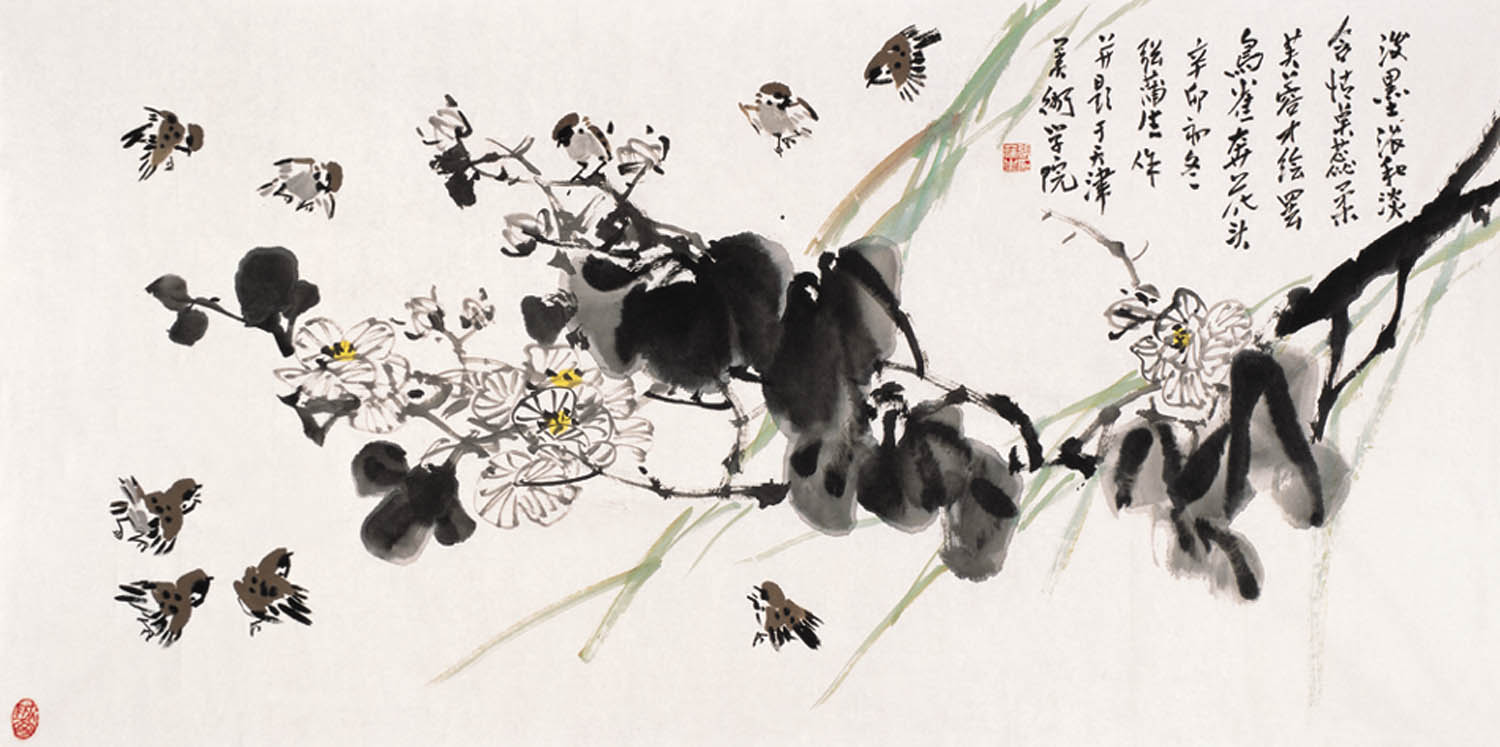 泼墨浓和淡
含情蕊柔
芙蓉才绘罢
鸟雀奔花头
辛卯初冬
张蒲生作
并题于天津
美術学院